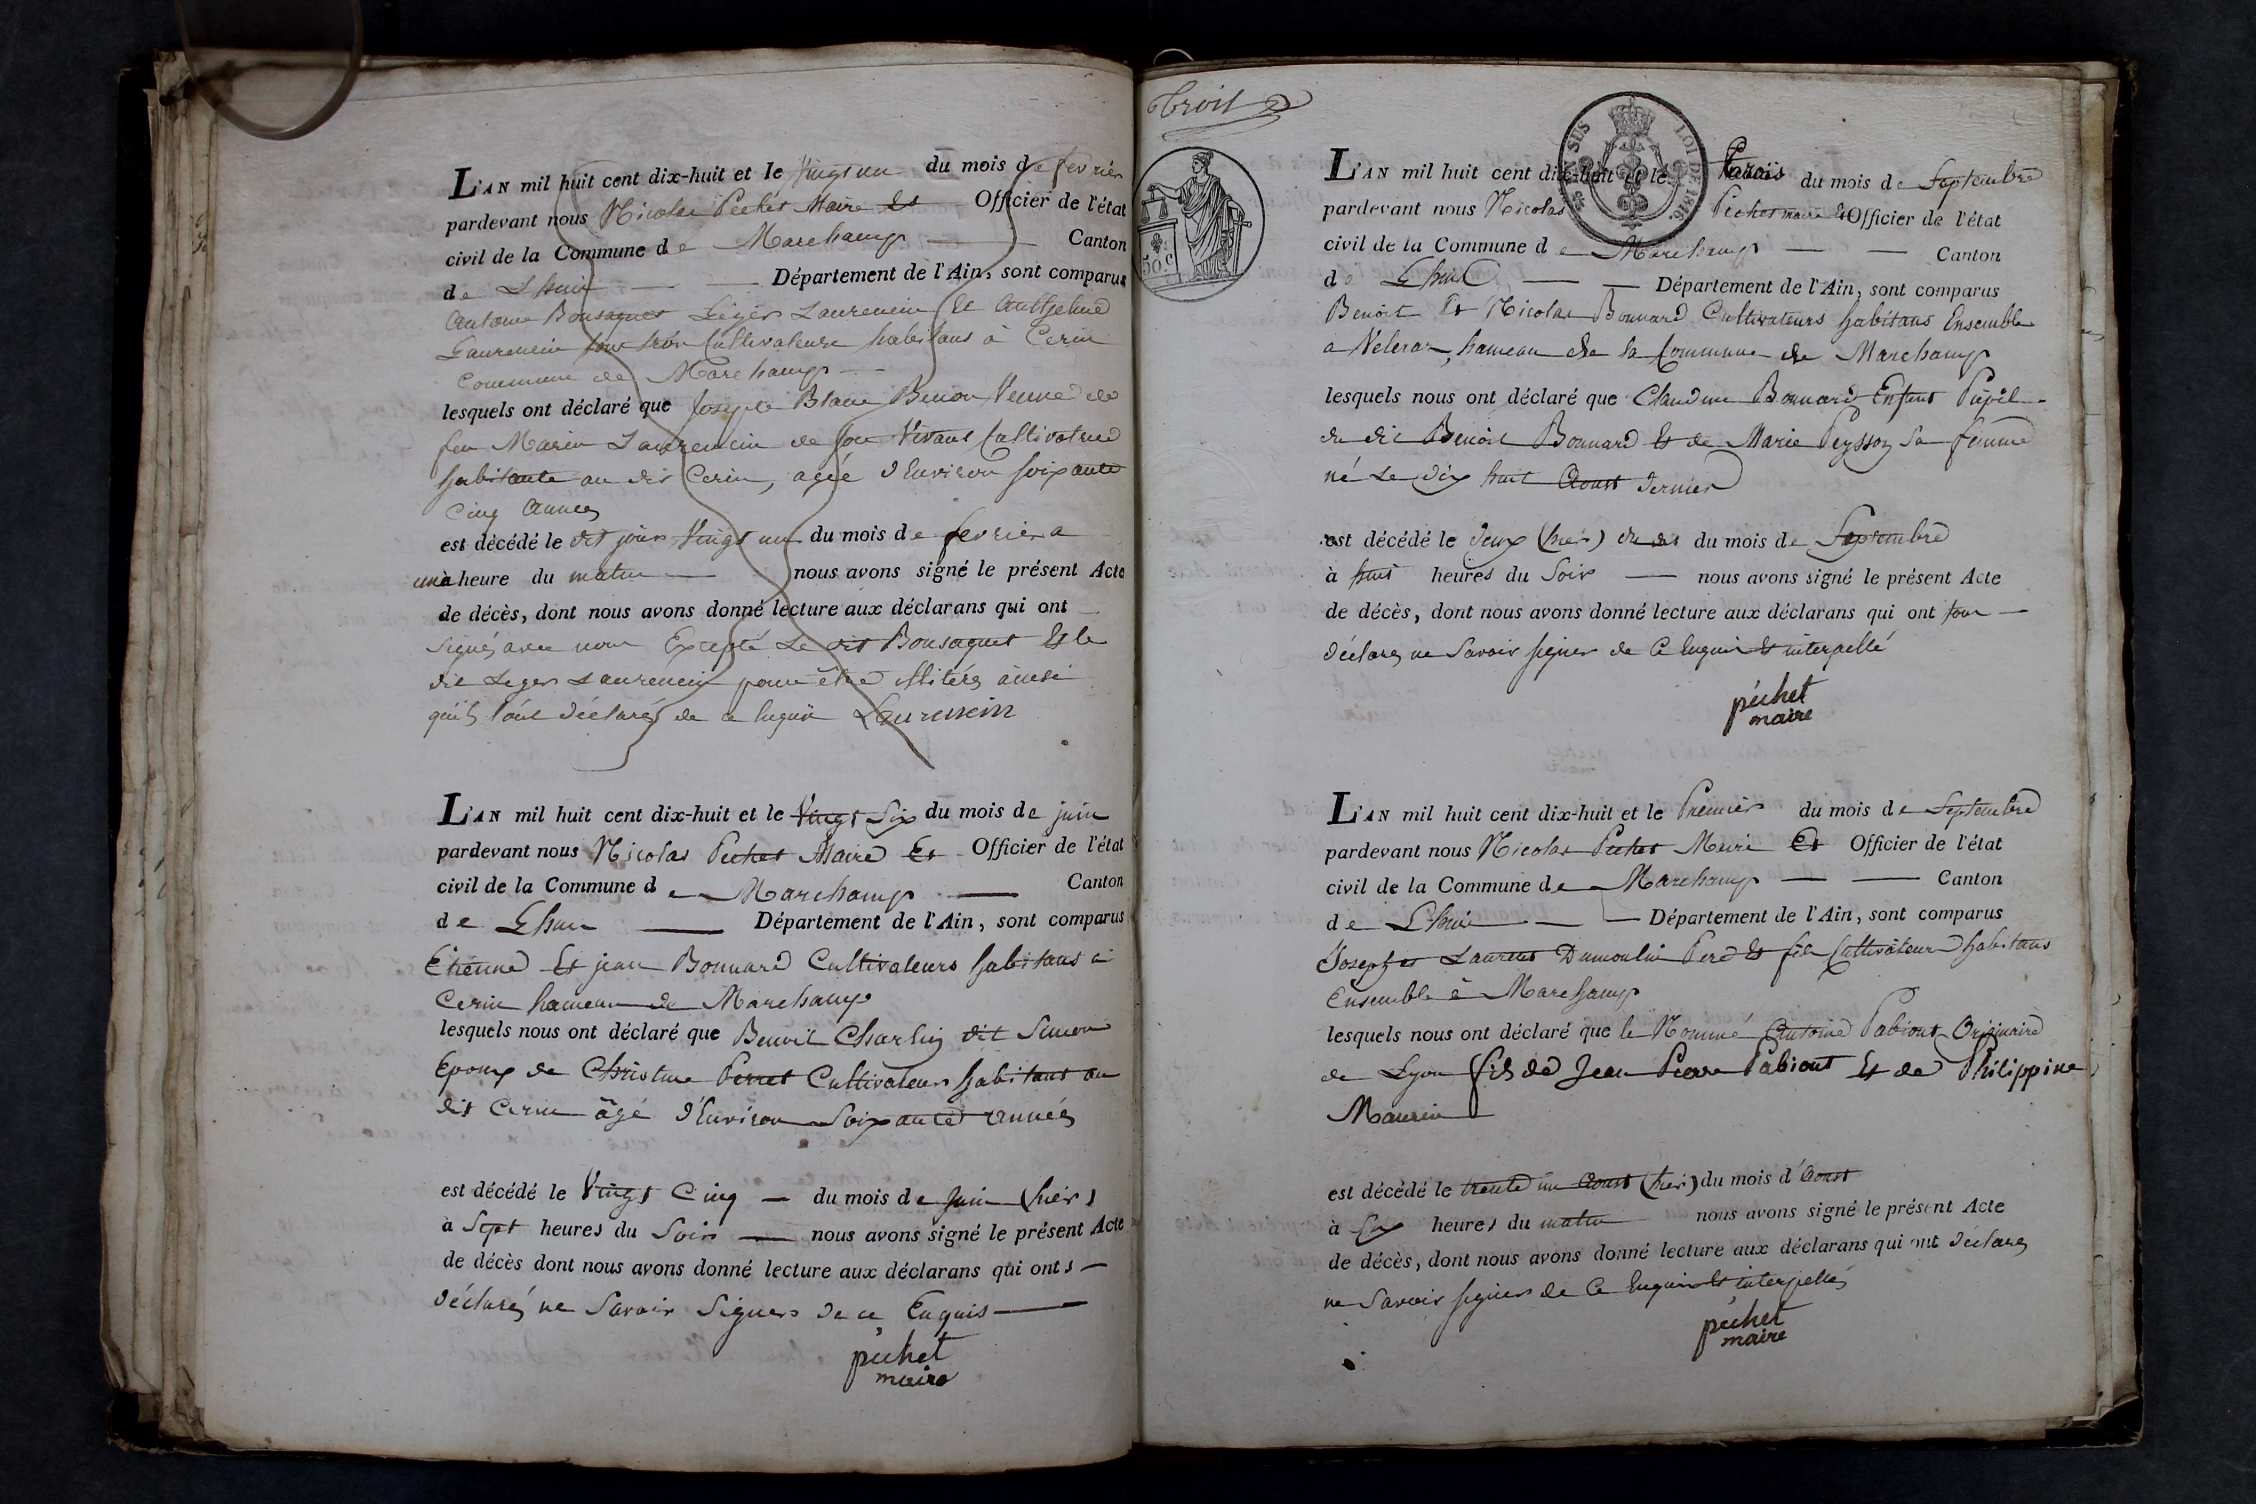 L'AN mil huit cent dix-huit et le Vingt un du mois de fevrier
pardevant nous Nicolas Pechet Maire Et Officier de l'état
civil de la Commune de Marchamp Canton
de Lhuis Département de l'Ain, sont comparus
Antoine Bonsaquet Leger Laurencin Et Anthelme
Laurencin tous trois Cultivateurs habitans à Cerin
Commune de Marchamp
lesquels ont déclaré que Josepte Blanc Benon Veuve de
feu Marin Laurencin de son Vivant Cultivateur
habitante au dit Cerin, agée d'Environ soixante
Cinq Années
est décédé le dit jour Vingt un du mois de fevrier a
une heure du matin nous avons signé le présent Acte
de décès, dont nous avons donné lecture aux déclarans qui ont
signés avec nous Excepté Le dit Bonsaquet Et le
dit Leger Laurencin pour être illitérés ainsi
qu'ils l'ont déclarés de ce Enquis Laurensein
L'AN mil huit cent dix-huit et le Vingt Six du mois de juin
pardevant nous Nicolas Pechet Maire Et Officier de l'état
civil de la Commune de Marchamp Canton
de Lhuis Département de l'Ain, sont comparus
Etienne Et jean Bonnard Cultivateurs habitans à
Cerin hameau de Marchamp
lesquels nous ont déclaré que Benoit Charlin dit Simon
Epoux de Christine Perret Cultivateur habitant au
dit Cerin âgé d'Environ Soixante années
est décédé le Vingt Cinq du mois de Juin (hier)
à Sept heures du Soir nous avons signé le présent Acte
de décès dont nous avons donné lecture aux déclarans qui ont
déclarés ne Savoir Signer de ce Enquis
péchet
maire
Troit
50 c
LOI DE 1816.
L'AN mil huit cent dix-huit et le Trois du mois de Septembre
pardevant nous Nicolas Péchet maire Et Officier de l'état
civil de la Commune de Marchamp Canton
de Lhuis Département de l'Ain, sont comparus
Benoit Et Nicolas Bonnard Cultivateurs habitans Ensemble
a Veleraz, hameau de la Commune de Marchamp
lesquels nous ont déclaré que Claudine Bonnard Enfant Pupil
du dit Benoit Bonnard Et de Marie Peysson Sa femme
né Le dix huit Aoust dernier
est décédé le deux (hier) du dit du mois de Septembre
à huit heures du Soir nous avons signé le présent Acte
de décès, dont nous avons donné lecture aux déclarans qui ont tous
déclarés ne Savoir signer de Ce Enquis Et interpellé
péchet
maire
L'AN mil huit cent dix-huit et le Premier du mois de Septembre
pardevant nous Nicolas Pechet Maire Et Officier de l'état
civil de la Commune de Marchamp Canton
de Lhuis Département de l'Ain, sont comparus
Joseph et Laurent Dumoulin Pere Et fils Cultivateurs habitans
Ensemble à Marchamp
lesquels nous ont déclaré que le Nommé Antoine Pabiout Originaire
de Lyon fils de Jean Pierre Pabiout Et de Philippine
Maurin
est décédé le trente un Aoust (hier) du mois d'Aoust
à Six heures du matin nous avons signé le présent Acte
de décès, dont nous avons donné lecture aux déclarans qui ont déclarés
ne Savoir signer de Ce Enquis Et interpellés
péchet
maire